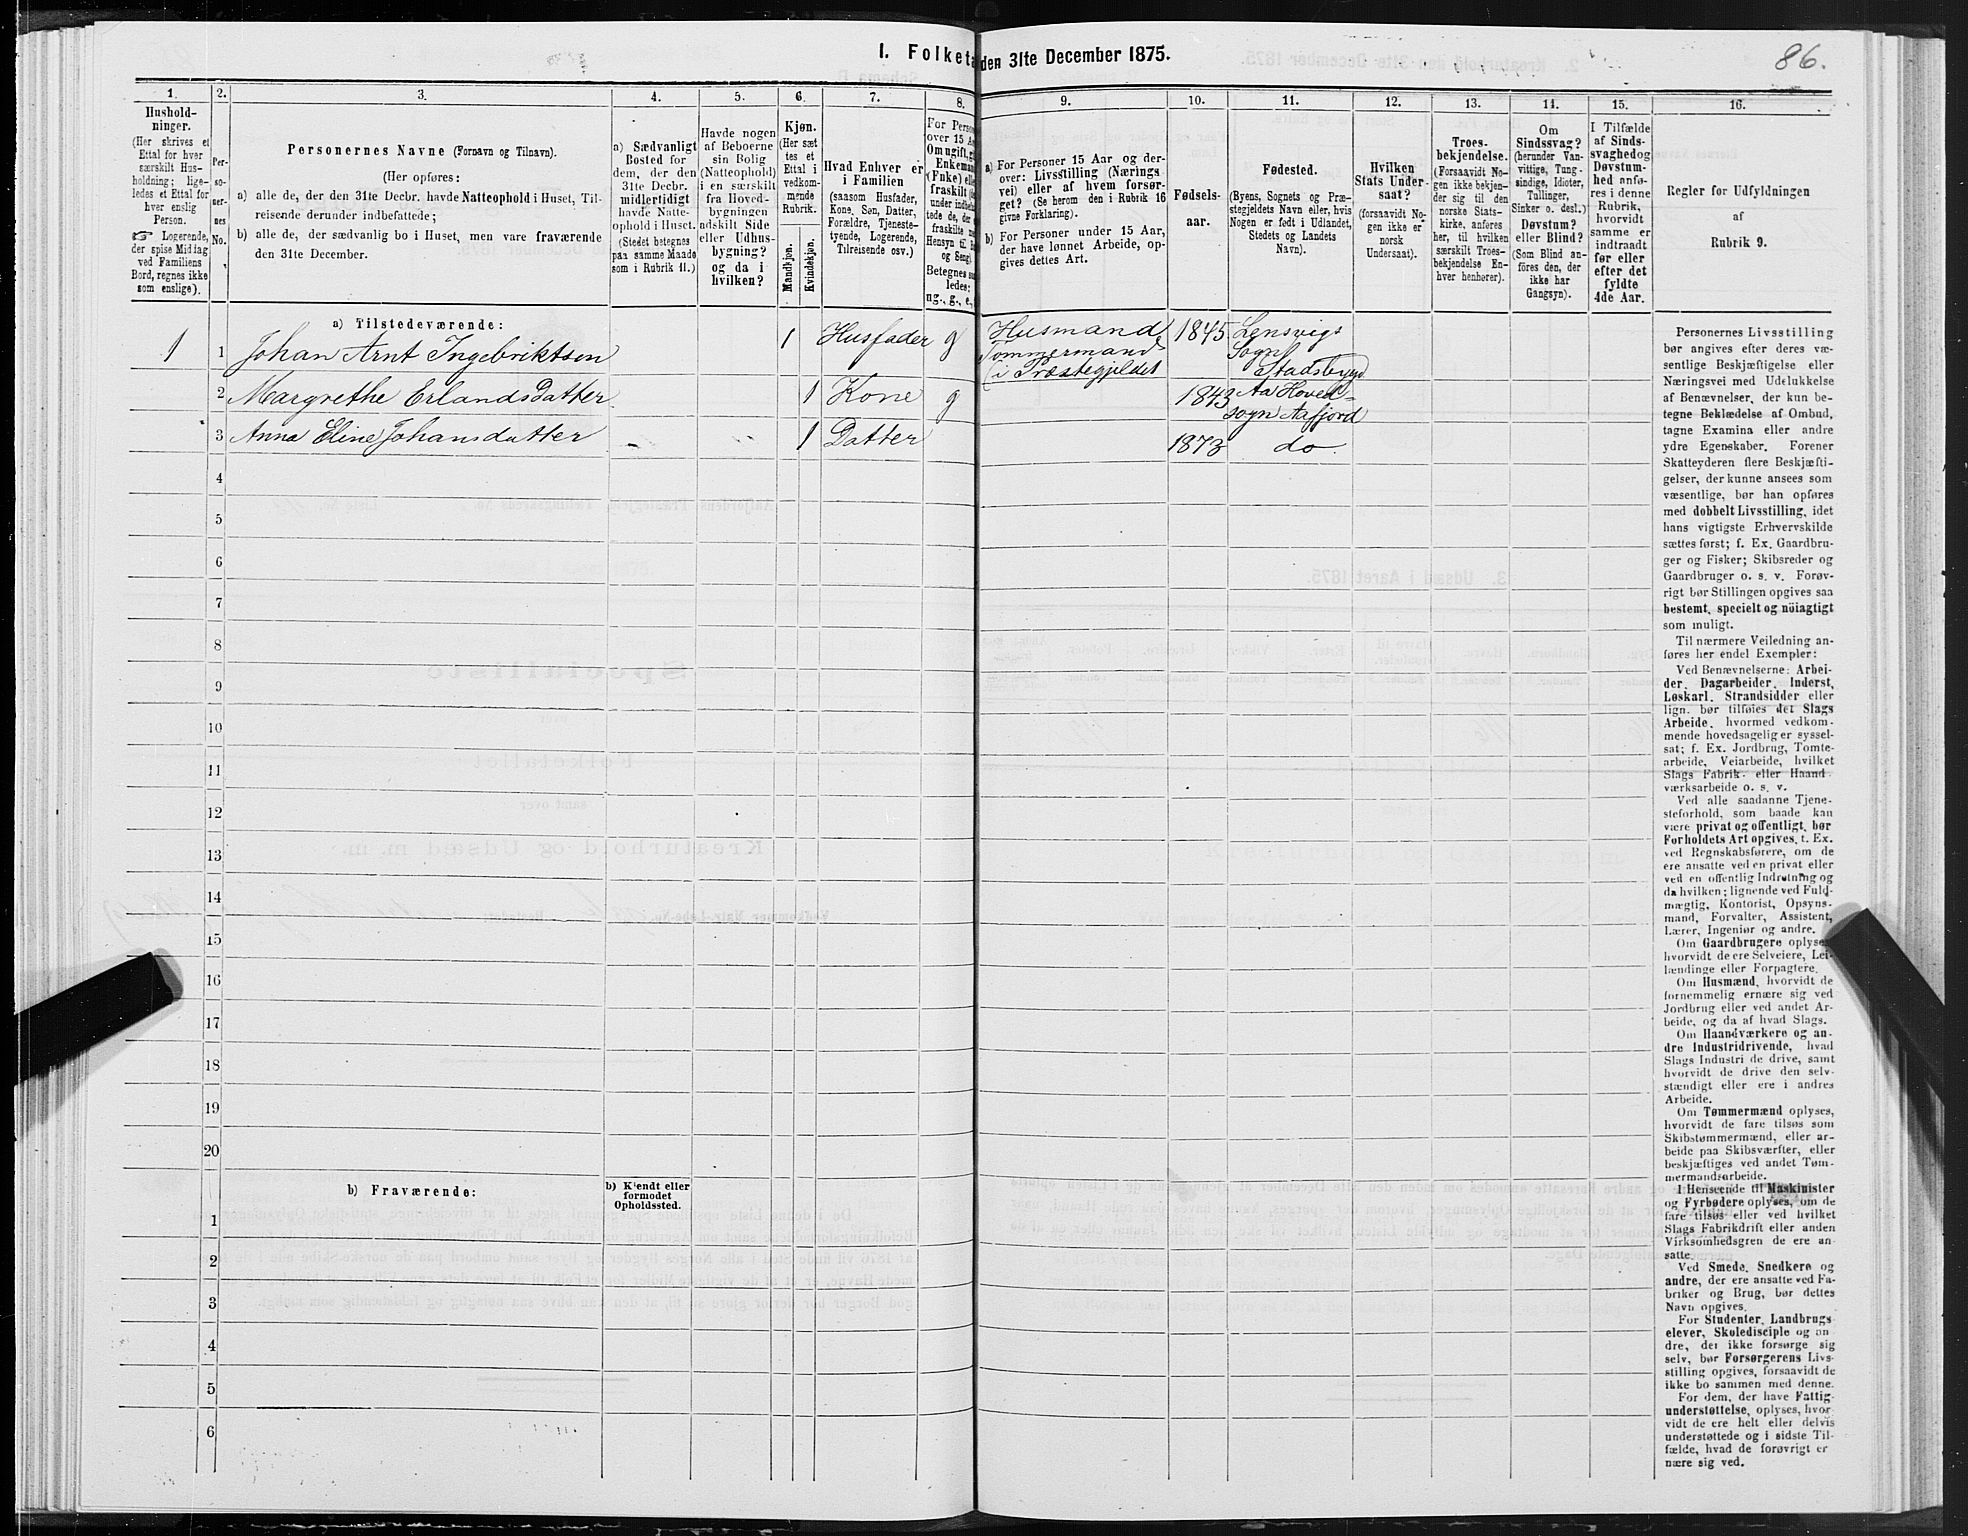 I. Folketa den 31te December 1875.
86.
1.
Hushold-
ninger.
(Her skrives et
Ettal for hver
særskilt Hus-
holdning; lige-
ledes et Ettal for
hver enslig
Person.
☞ Logerende,
der spise Middag
ved Familiens
Bord, regnes ikke
som enslige).
2.
Per-
so-
ner-
nes
No.
3.
Personernes Navne (Fornavn og Tilnavn).
(Her opføres:
a) alle de, der den 31te Decbr. havde Natteophold i Huset, Til-
reisende derunder indbefattede;
b) alle de, der sædvanlig bo i Huset, men vare fraværende
den 31te December.
4.
a) Sædvanligt
Bosted for
dem, der den
31te Decbr.
midlertidigt
havde Natte-
ophold i Huset.
(Stedet betegnes
paa samme Maade
som i Rubrik 11.)
5.
Havde nogen
af Beboerne
sin Bolig
(Natteophold)
i en særskilt
fra Hoved-
bygningen
adskilt Side
eller Udhus-
bygning?
og da i
hvilken?
6.
Kjøn.
(Her sæt
tes et
Ettal i
vedkom-
mende
Rubrik.
Mandkjøn.
Kvindekjøn.
7.
Hvad Enhver er
i Familien
(saasom Husfader,
Kone, Søn, Datter,
Forældre, Tjeneste-
tyende, Logerende,
Tilreisende osv.)
8.
For Perso
over 15 A
Om ugift, gi
Enkeman
(Fnke) elle
fraskilt (
under indb
tede de, der
fraskilte m
Hensyn til B
og Seng).
Betegnes s
ledes:
ug., g., e.,
9.
a) For Personer 15 Aar og der-
over: Livsstilling (Nærings
vei) eller af hvem forsør-
get? (Se herom den i Rubrik 16
givne Forklaring).
b) For Personer under 15 Aar,
der have lønnet Arbeide, op-
gives dettes Art.
10.
Fødsels-
aar.
11.
Fødested.
(Byens, Sognets og Præ-
stegjeldets Navn eller, hvis
Nogen er født i Udlandet,
Stedets og Landets
Navn).
12.
Hvilken
Stats Under-
saat?
(forsaavidt No-
gen ikke er
norsk
Undersaat).
13.
Troes-
bekjendelse.
(Forsaavidt No-
gen ikke bekjen-
der sig til den
norske Stats-
kirke, anføres
her, til hvilken
særskilt Troes-
bekjendelse En-
hver henhører).
14.
Om
Sindssvag?
(herunder Van-
vittige, Tung-
sindige, Idioter,
Tullinger,
Sinker o. desl.)
Døvstum?
eller Blind?
(Som Blind an-
føres den, der
ikke har
Gangsyn).
15.
I Tilfælde
af Sinds-
svaghedog
Døvstum-
hed anfø-
res i denne
Rubrik,
hvorvidt
samme er
indtraadt
før eller
efter det
fyldte
4de Aar.
16.
Regler for Udfyldningen
af
Rubrik 9.
a) Tilstedeværende:
1 1 Johan Arnt Ingebriktsen 1 Husfader g Husmand, 1845 Lensvigs
Tømmermand Sogn
i Præstegjeldet Stadsbygd
2 Margrethe Erlandsdatter 1 Kone g 1843 Aa Hoved-
sogn Aafjord
3 Anna Eline Johansdatter 1 Datter 1873 do.
4
5
6
7
8
9
10
11
12
13
14
15
16
17
18
19
20
b) Fraværende:
b) Kjendt eller
formodet
Opholdssted.
1
2
3
4
5
6
Personernes Livsstilling
bør angives efter deres væ-
sentlige Beskjæftigelse eller
Næringsvei med Udelukkelse
af Benævnelser, der kun be-
tegne Beklædelse af Ombud,
tagne Examina eller andre
ydre Egenskaber. Forener
Skatteyderen flere Beskjæfti-
gelser, der kunne ansees som
væsentlige, bør han opføres
med dobbelt Livsstilling, idet
hans vigtigste Erhvervskilde
sættes først; f. Ex. Gaardbru-
ger og Fisker; Skibsreder og
Gaardbruger o. s. v. Forøv-
rigt bør Stillingen opgives saa
bestemt, specielt og nöiagtigt
som muligt.
Til nærmere Veiledning an-
føres her endel Exempler:
Ved Benævnelserne: Arbei-
der, Dagarbeider, Inderst,
Løskarl, Strandsidder eller
lign. bør tilføies det Slags
Arbeide, hvormed vedkom-
mende hovedsagelig er syssel-
sat; f. Ex. Jordbrug, Tomte-
arbeide, Veiarbeide, hvilket
Slags Fabrik- eller Haand-
værksarbeide o. s. v.
Ved alle saadanne Tjene-
steforhold, som baade kan
være privat og offentligt, bør
Forholdets Art opgives, t. Ex.
ved Regnskabsførere, om de
ere ansatte ved en privat eller
ved en offentlig Indretning og
da hvilken; lignende ved Fuld-
mægtig, Kontorist, Opsyns-
mand, Forvalter, Assistent,
Lærer, Ingeniør og andre.
Om Gaardbrugere oplyses,
hvorvidt de ere Selveiere, Lei-
lændinge eller Forpagtere.
Om Husmænd, hvorvidt de
fornemmelig ernære sig ved
Jordbrug eller ved andet Ar-
beide, og da af hvad Slags.
Om Haandværkere og an-
dre Industridrivende, hvad
Slags Industri de drive, samt
hvorvidt de drive den selv-
stændigt eller ere i andres
Arbeide.
Om Tømmermænd oplyses,
hvorvidt de fare tilsøs som
Skibstømmermænd, eller ar-
beide paa Skibsværfter, eller
beskjæftiges ved andet Tøm-
mermandsarbeide.
I Henseende til Maskinister
og Fyrbødere oplyses, om de
fare tilsøs eller ved hvilket
Slags Fabrikdrift eller anden
Virksomhedsgren de ere an-
satte.
Ved Smede, Snedkere og
andre, der ere ansatte ved Fa-
briker og Brug, bør dettes
Navn opgives.
For Studenter, Landbrugs-
elever, Skoledisciple og an-
dre, der ikke forsørge sig
selv, bør Forsørgerens Livs-
stilling opgives, forsaavidt de
ikke bo sammen med denne.
For dem, der have Fattig-
understøttelse, oplyses, hvor-
vidt de ere helt eller delvis
understøttede og i sidste Til-
fælde, hvad de forøvrigt er
nære sig ved.